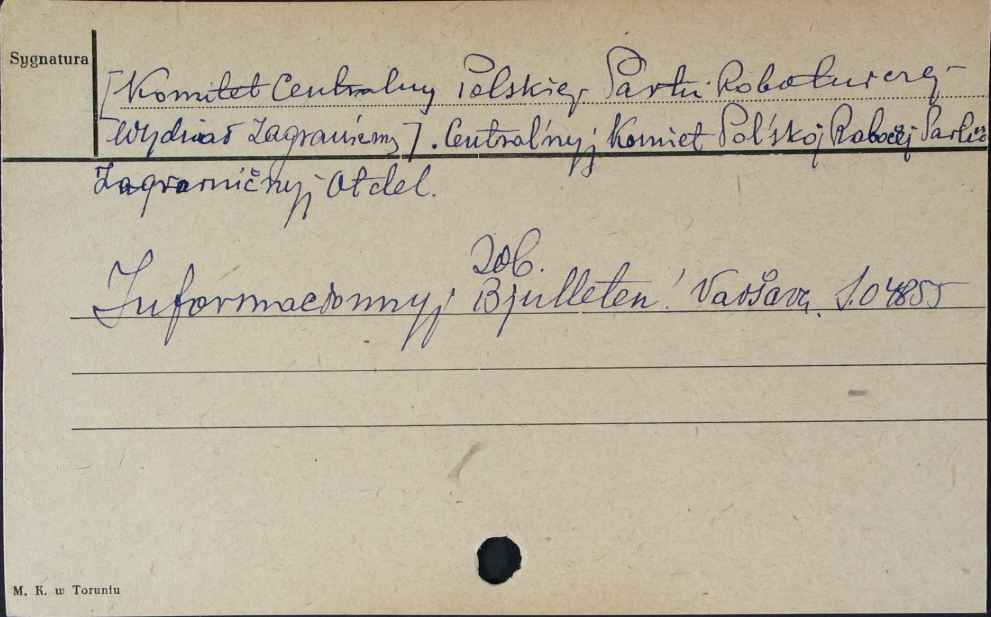 Sygnatura
[Komitet Centralny Polskiej Partii Robotniczej -
Wydział Zagraniczny]. Central'nyj Komiet Pol'skoj Rabočej Partii
Zagraničnyj Otdel.
Zob.
Informacionnyj Bjulleten'. Varšava. S.04855
M. K. w Toruniu